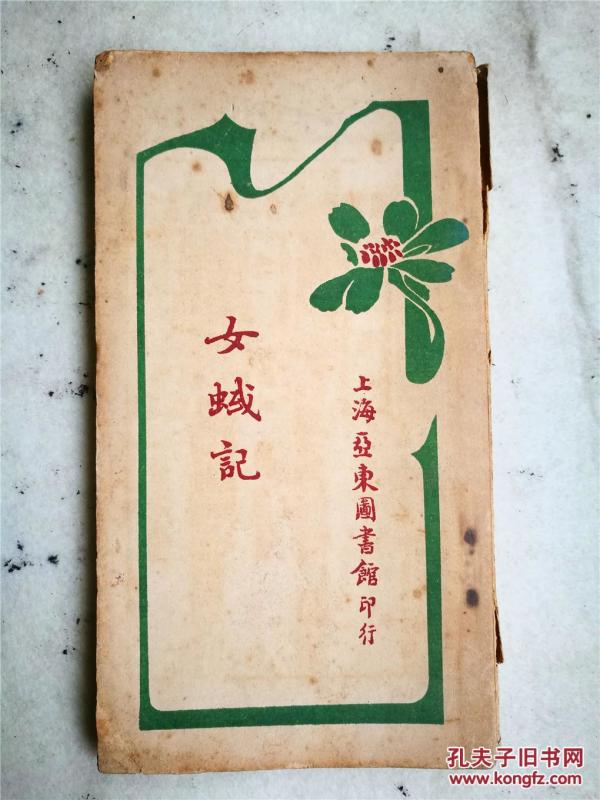 女蜮記
上海亞東圖書館印行
孔夫子旧书网
www.kongfz.com